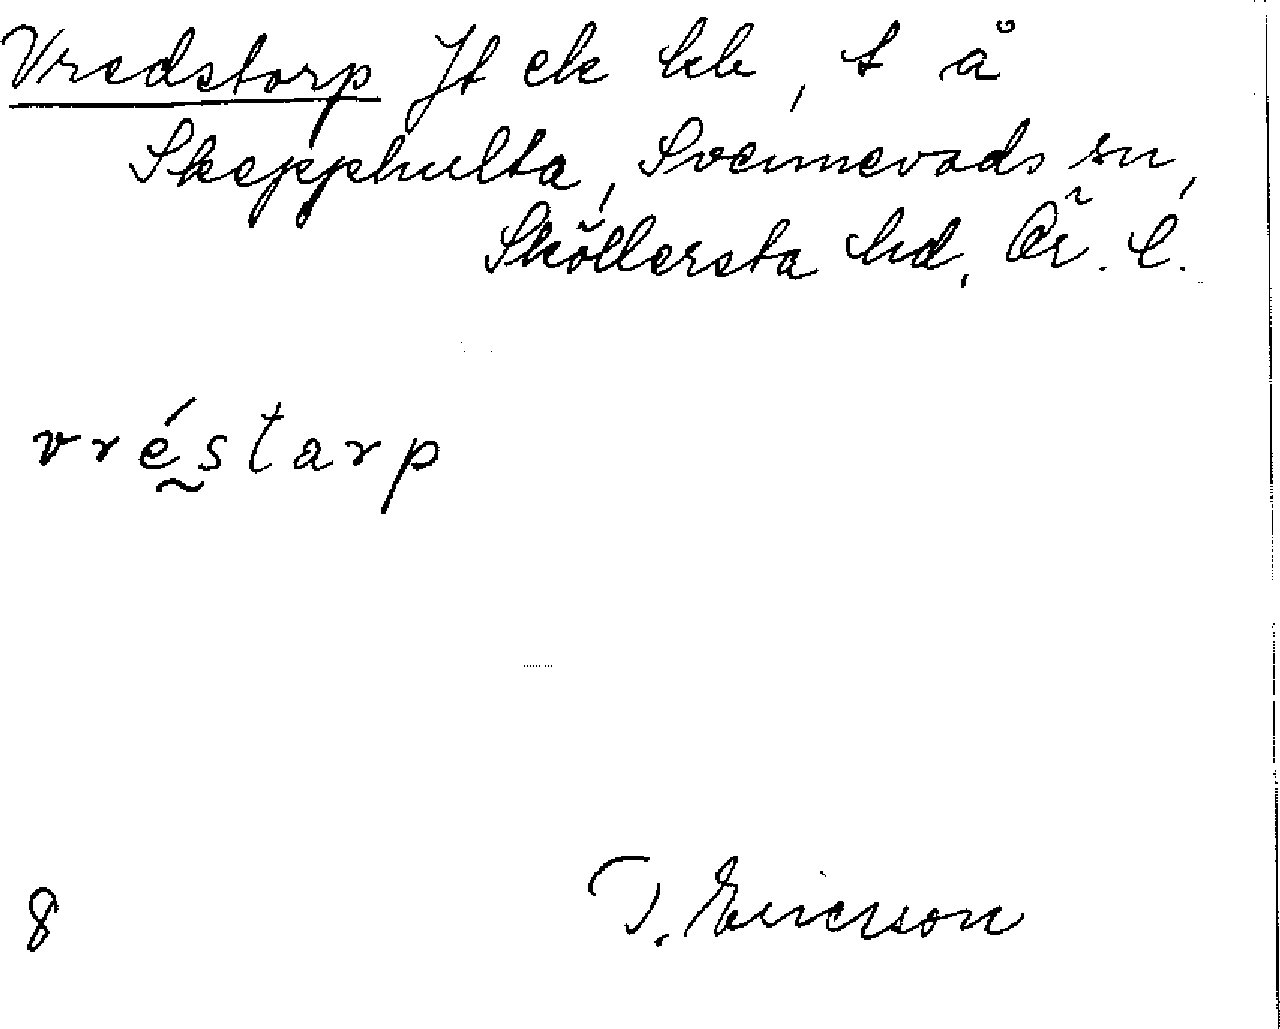 Vredstorp Jt ek kb, t å
Skepphulta, Svennevads sn,
Sköllersta hd, Ör. l.
vréstarp
8
T. Ericson